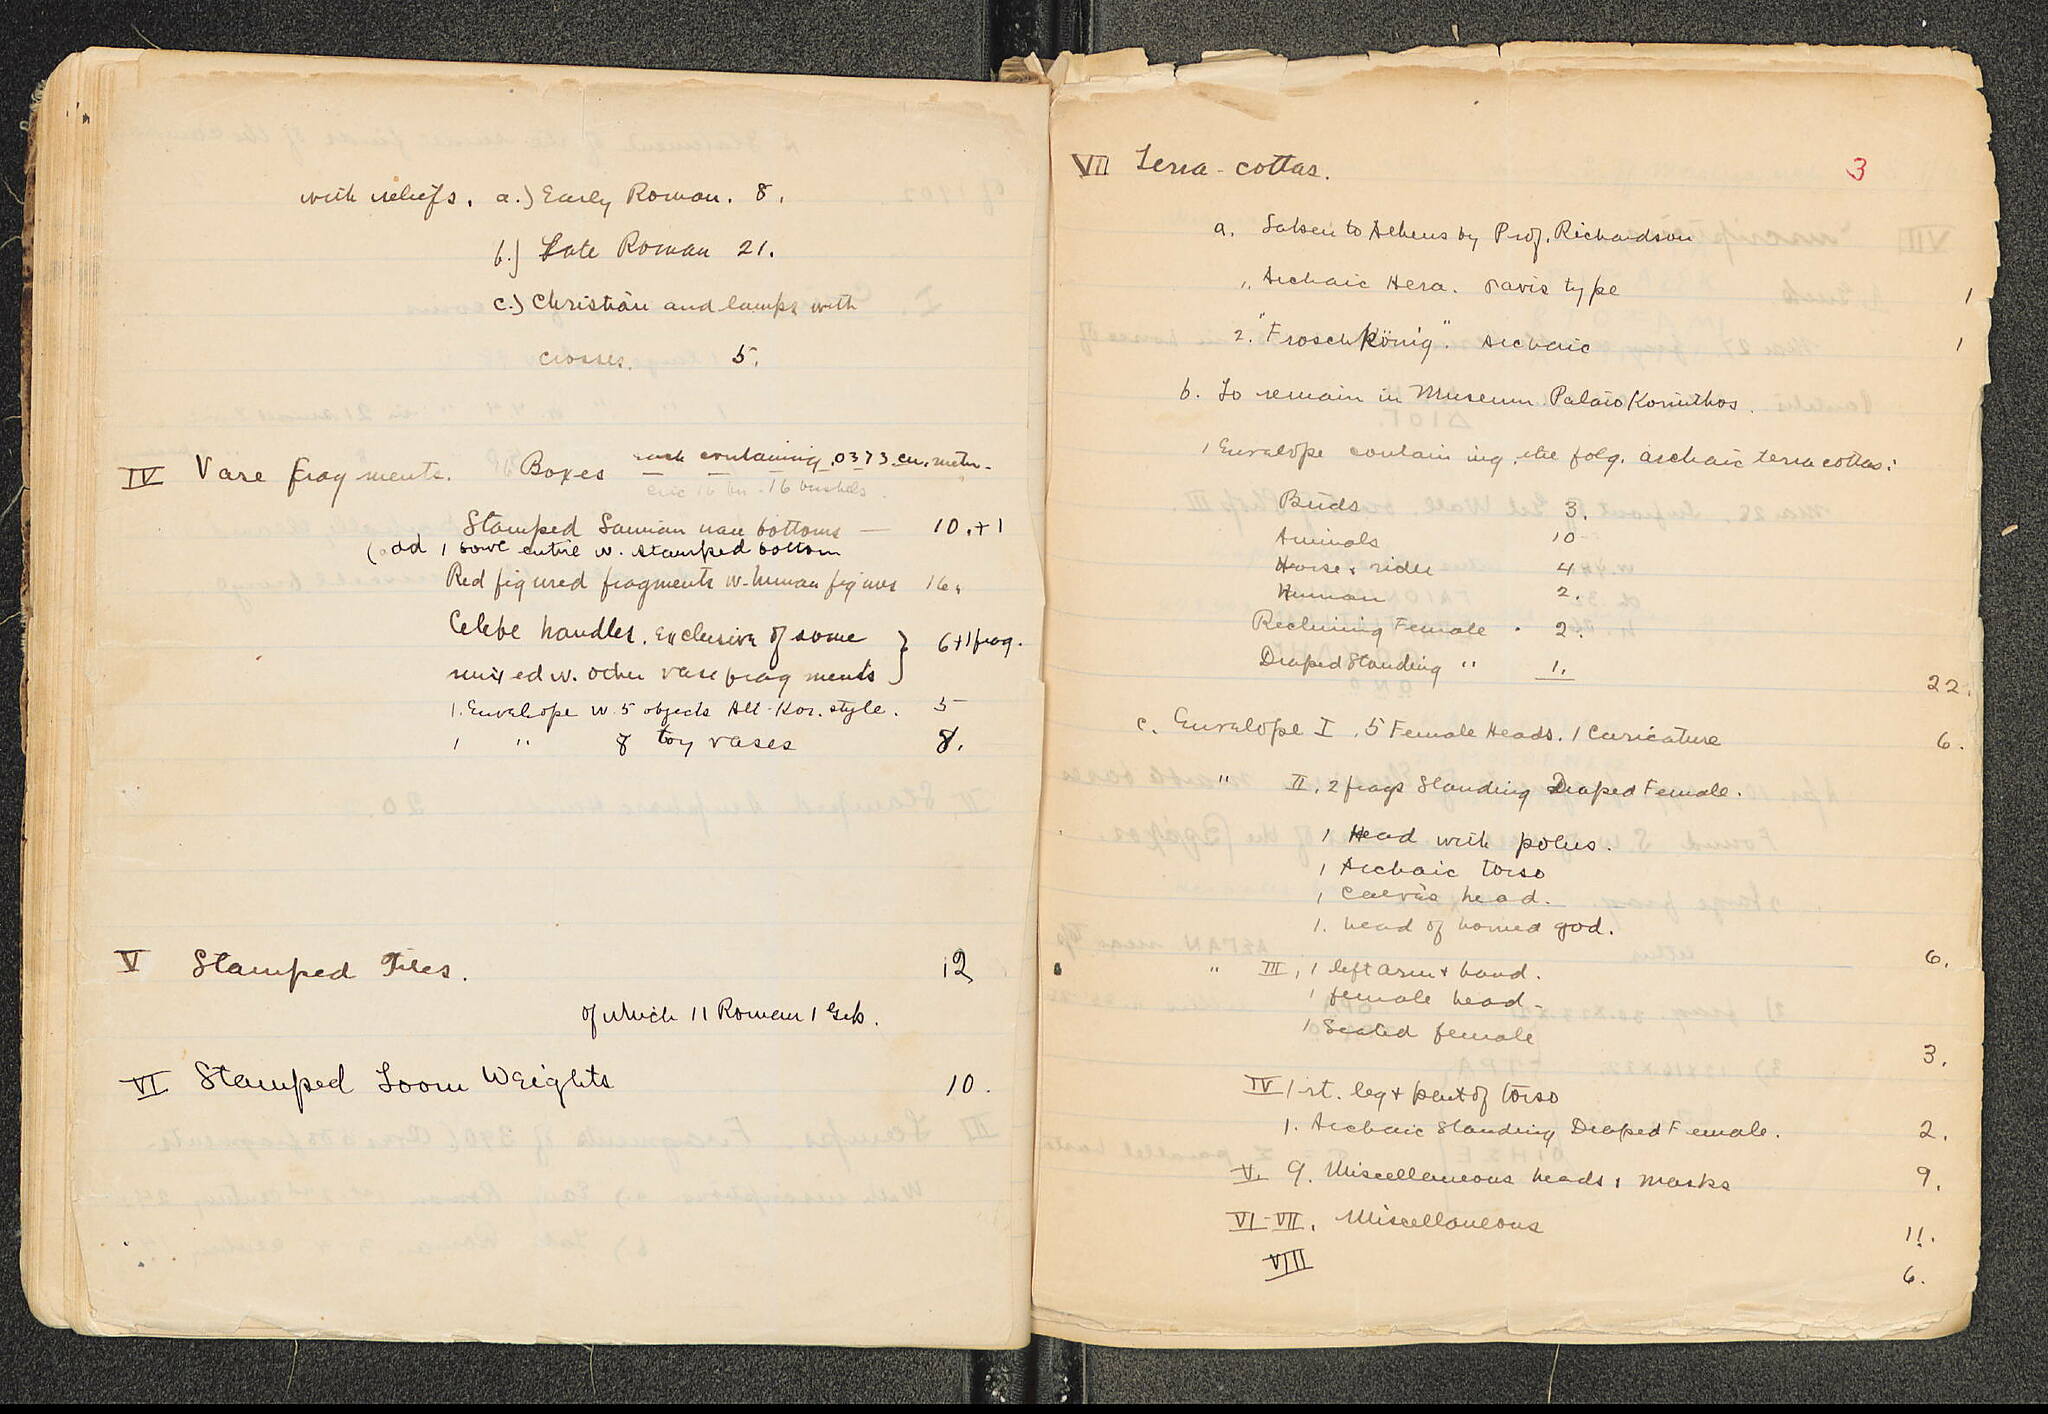 with reliefs. a.) Early Roman. 8.
b.) Late Roman 21.
c.) Christian and lamps with
crosses. 5.
IV Vase fragments. Boxes each containing .0373 cu. meter.
16 bushels.
Stamped Samian vase bottoms — 10.+1
(add 1 bowl entire w. stamped bottom
Red figured fragments w. human figures 16.
Celebe handles, exclusive of some
mixed w. other vase fragments } 6+1 frag.
1. Envelope w. 5 objects Alt-Kor. style. 5
1 " 8 toy vases 8.
V Stamped Tiles. 12
of which 11 Roman 1 Grk.
VI Stamped Loom Weights 10.
VII Terra-cottas. 3
a. Taken to Athens by Prof. Richardson
1, Archaic Hera. type 1
2. "Froschkönig". Archaic 1
b. To remain in Museum Palaio Korinthos.
1 Envelope containing the folg. archaic terra cottas:
Birds 3.
Animals 10
Horse & rider 4
Human 2.
Reclining Female . 2.
Draped Standing " 1.
22.
c. Envelope I. 5 Female Heads. 1 Caricature 6.
" II. 2 frags Standing Draped Female.
1 Head with polus.
1 Archaic torso
1 head.
1. head of horned god.
6.
" III, 1 left arm & hand.
1 female head.
1 Seated female
3.
IV 1 rt. leg & part of torso
1. Archaic Standing Draped Female. 2.
V. 9. Miscellaneous heads & masks 9.
VI-VII. Miscellaneous 11.
VIII 6.